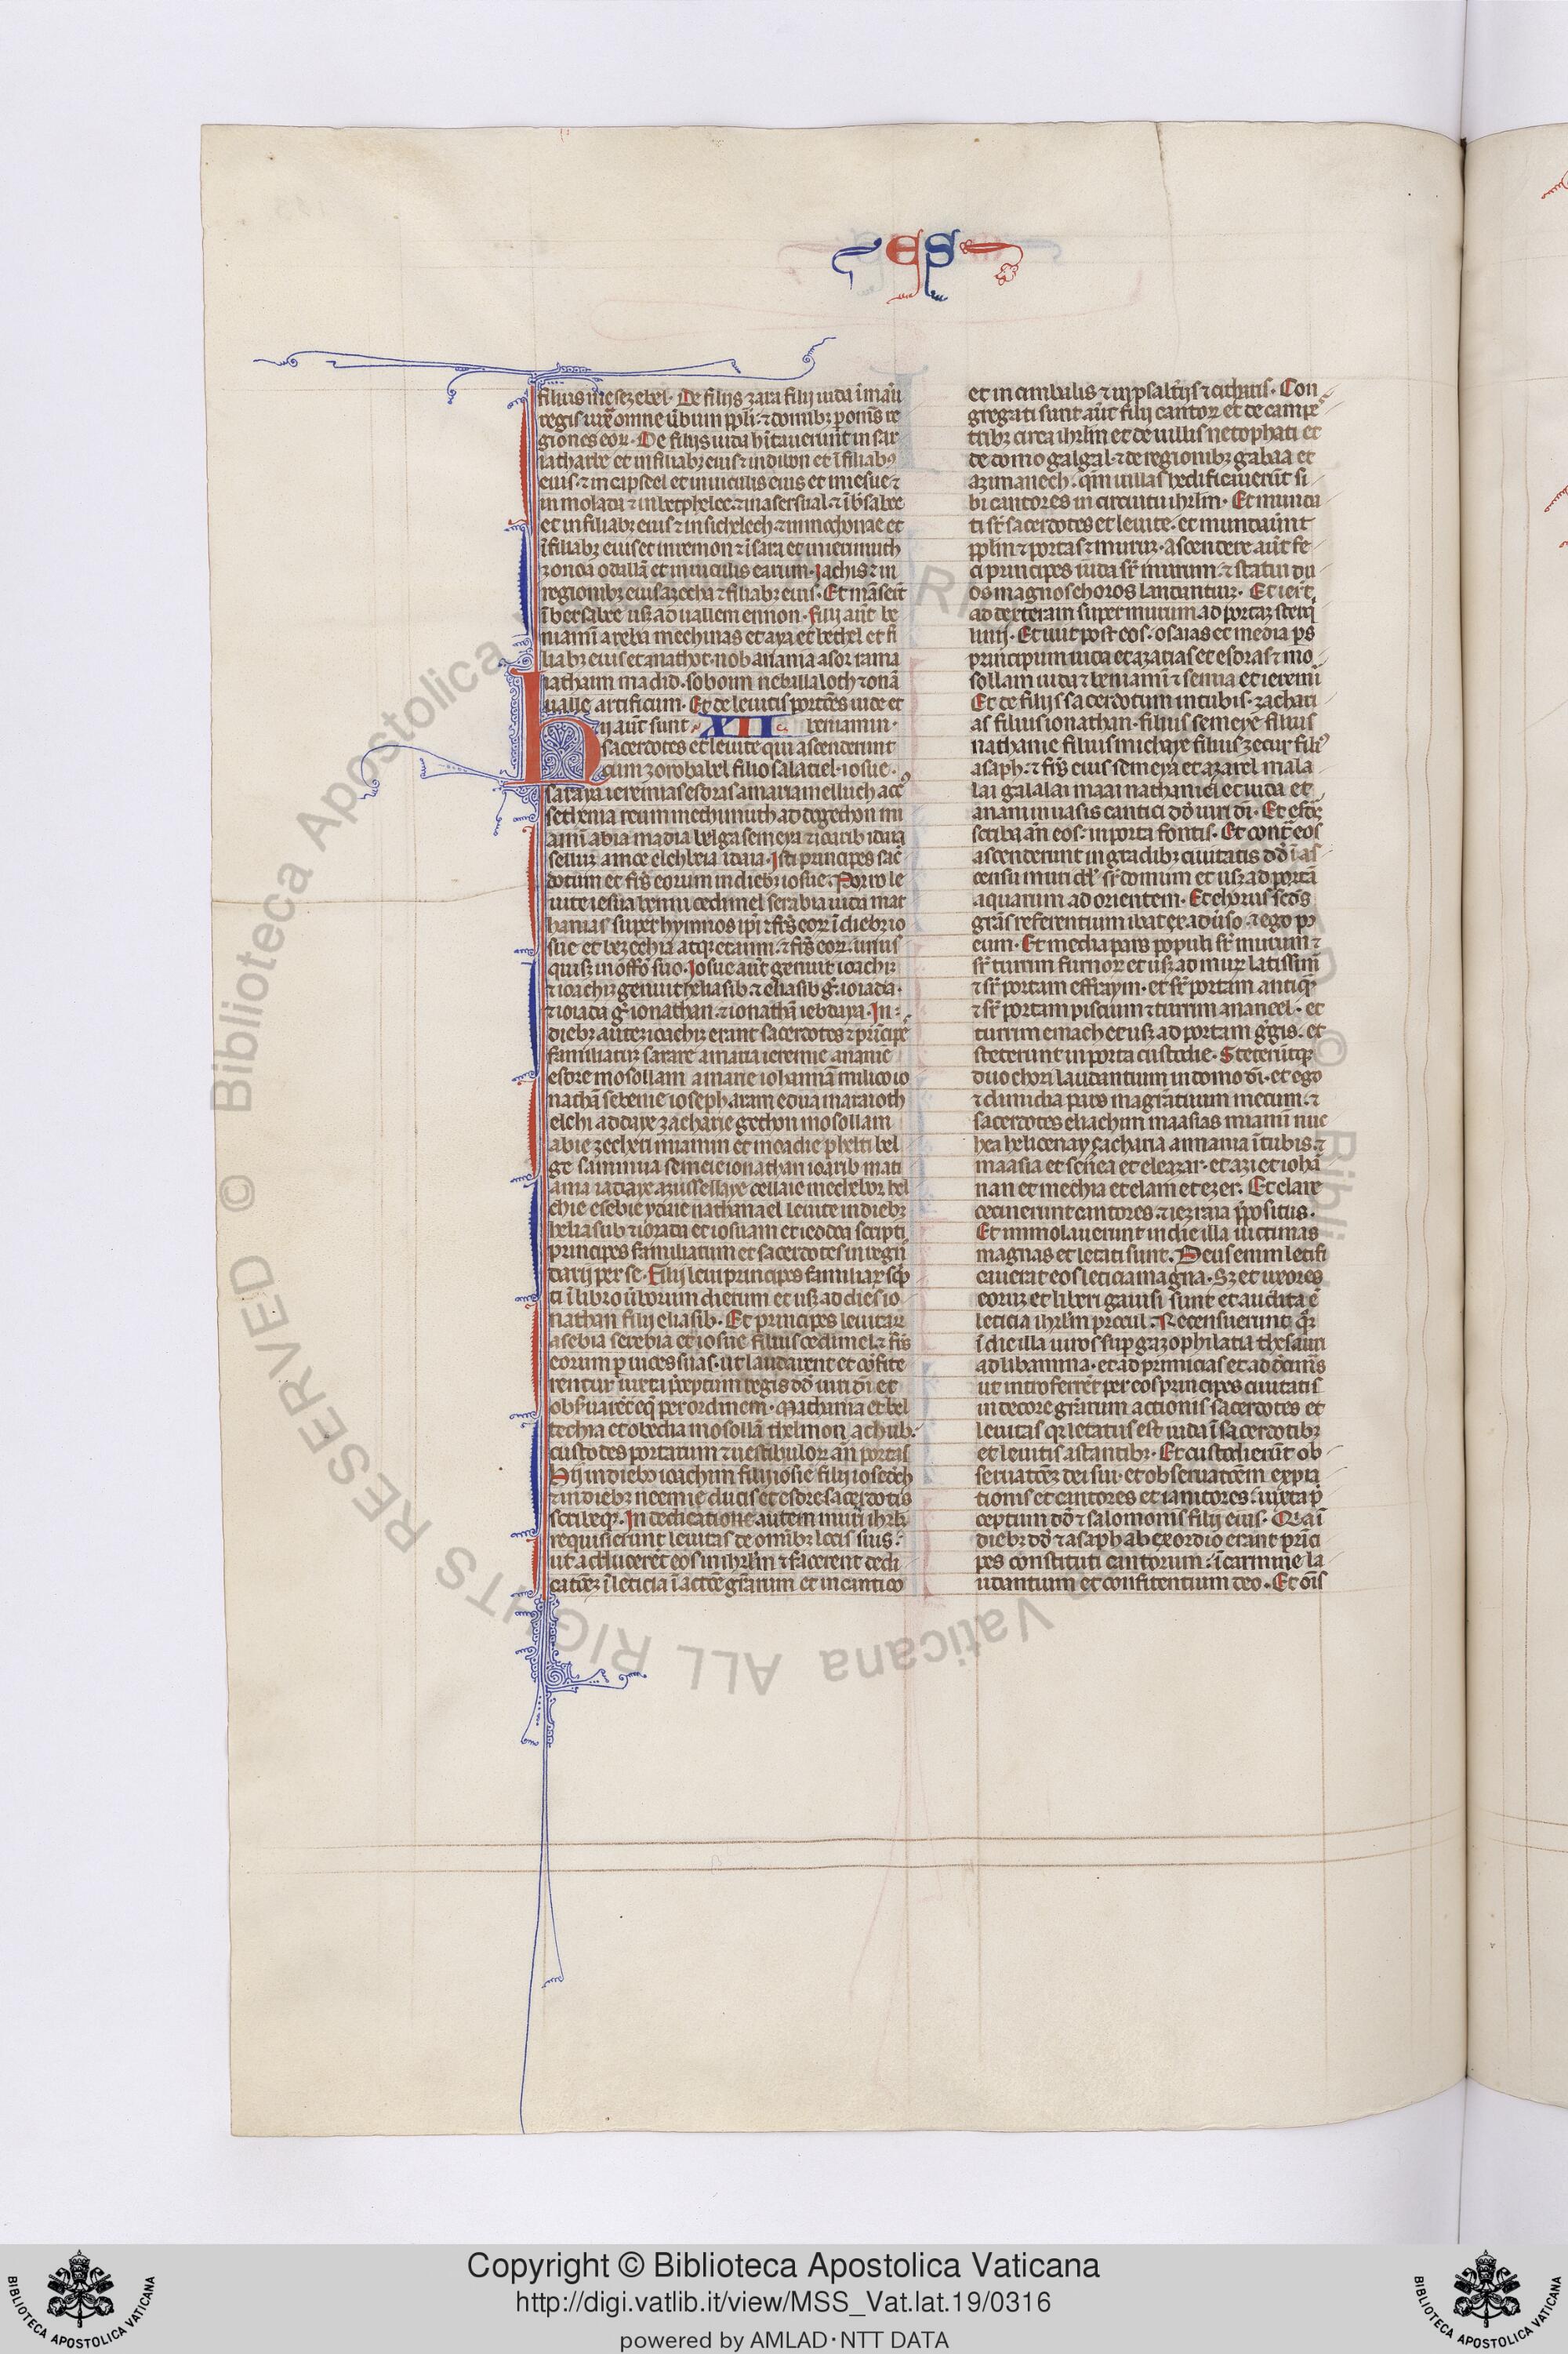 ES
filius mesezebel. De filijs zara filij iuda ī manu
regis iuxͣ omne ūbum ppli. ⁊ domibꝫ p omīs re
giones eoꝝ. De filijs iuda hītauerunt in car
iatharbe et in filiabꝫ eius ⁊ in dibon et ī filiabꝰ
eius. ⁊ in capseel et in uiculis eius et in iesue ⁊
in molada ⁊ in betphelee. ⁊ in asersual. ⁊ ī bsabee
et in filiabꝫ eius ⁊ in sichelech ⁊ in mochonae et
ī filiabꝫ eius et in remon ⁊ ī sara et in ierimuth
zonoa odallā et in uiculis earum. Iachis ⁊ in
regionibꝫ eius azecha ⁊ filiabꝫ eius. Et māserūt
ī bersabee usꝫ ad uallem ennon. Filij aūt be
niamī a reba mechmas et aya et bethel et fi
liabꝫ eius et anathot. nob anania asor rama
iethaim madid. soboim neballa loth ⁊ onā
ualle artificum. Et de leuitis portōes iude et
beniamin.
XII
Hij aūt sunt
sacerdotes et leuite qui ascenderunt
cum zorobabel filio salatiel. iosue.
saraya ieremias esdras amaria melluch acc
sethenia reum mechimuth addo gethon mi
amī abia madia belga semeya ⁊ ioarib idaia
sellum amoe elchbeia idaia. Isti principes sac
dotum et frīs eorum in diebꝫ iosue. Porro le
uite iesua bennu cedimel serabia iuda mat
hanias super hymnos ipī ⁊ frīs eoꝝ ī diebꝫ io
sue et bezechia atqꝫ etanni. ⁊ frīs eoꝝ. unus
quisqꝫ in offō suo. Iosue aūt genuit ioachim
⁊ ioachim genuit heliasib. ⁊ eliasib gͭ. ioiada.
⁊ ioiada gͭ ionathan. ⁊ ionathā iebdaya. In
diebꝫ autē ioachim erant sacerdotes ⁊ prīcipe
familiarum saraie amaria ieremie ananie
esdre mosollam amarie iohannā milico io
nathā sebenie ioseph. aram edua maraioth
elchi addaye zacharie gethon mosollam
abie zecheri miamin et moadie phelti bel
ge sammua semeie ionathan ioarib mati
ania iadaye azui sellaye cellaie mochebor hel
chie esebie ydaie nathanael leuite in diebꝫ
heliasub ⁊ ioiada et iosuam et ieddoa scripti
principes familiarum et sacerdotes in regno
darij per se. Filij leui principes familiaꝝ scͥp
ti ī libro ūborum dierum et usꝫ ad dies io
nathan filij eliasib. Et principes leuitaꝝ
asebia serebia et iosue filius cedimel. ⁊ frīs
eorum p uices suas. ut laudarent et cōfite
rentur iuxta pceptum regis dd uiri dī et
obsuarēt eqͣ per ordinem. Mathania et bel
techia et obedia mosollā thelmon achub.
custodes portarum ⁊ uestibuloꝝ an̄ portas
Hij in diebꝫ ioachim filij iosie filij iosedech
⁊ in diebꝫ neemie ducis et esdre sacerdotis
scribeqꝫ. In dedicatione autem muri ihrlm
requisierunt leuitas de omībꝫ locis suis.
ut adducerēt eos in ihrlm ⁊ facerent dedi
catōeꝫ ī leticia ī actōe gr̄arum et in cantico
et in cimbalis ⁊ in psalt̄ijs ⁊ cithāis. Con
gregati sunt aūt filij cantoꝝ et de campe
tribꝫ circa ihrlm et de uillis netophati et
de domo galgal. ⁊ de regionibꝫ gabaa et
azimauech. qm̄ uillas hedificauerūt si
bi cantores in circuitu ihrlm. Et munda
ti sr̄ sacerdotes et leuite. et mundaūnt
pplm ⁊ portas ⁊ murum. ascendere aūt fe
ci principes iuda sr̄ murum. ⁊ statui du
os magnos choros laudantium. Et iert
ad dexteram super murum ad portaꝫ sterq
linij. Et iuit post eos. osaias et media ps
principum iuda et azarias et esdras ⁊ mo
sollam iuda ⁊ beniamī ⁊ semia et ieremi
Et de filijs sacerdotum in tubis. zachari
as filius ionathan. filius semeye filius
nathanie filius michaye filius zecur filiꝰ
asaph. ⁊ frīs eius semeya et azarel mala
lai galalai maai nathaniel et iuda et
anani in uasis cantici dd uiri dī. Et esdꝫ
scriba an̄ eos. in porta fontis. Et contͣ eos
ascenderunt in gradibꝫ ciuitatis dd ī as
censu muri dd sr̄ domum et usꝫ ad portā
aquarum ad orientem. Et chorus scds
gr̄as referentium ibat ex aduso. ⁊ ego p9
eum. Et media pars populi sr̄ murum ⁊
sr̄ turrim furnoꝝ et usꝫ ad muꝝ latissimū
⁊ sr̄ portam effraym. et sr̄ portam antiqͣ
⁊ sr̄ portam piscium ⁊ turrim ananeel. et
turrim emach et usꝫ ad portam ggis. et
steterunt in porta custodie. Steterūtqꝫ
duo chori laudantium in domo dī. et ego
⁊ dimidia pars magrātuum mecum. ⁊
sacerdotes eliachim maasias miamī mic
hea helioenay zacharia annania ī tubis. ⁊
maasia et semea et eleazar. et azi et iohā
nan et mechia et elam et ezer. Et clare
cecinerunt cantores. ⁊ iezraia ppositus.
Et immolauerunt in die illa uictimas
magnas et letati sunt. Deus enim letifi
cauerat eos leticia magna. Sꝫ et uxores
eorum et liberi gauisi sunt et audita ē
leticia ihrlm procul. Recensuerunt qͣꝫ
ī die illa uiros sup gazophilatia thesauri
ad libamina. et ad primicias et ad decimas
ut introferrēt per eos principes ciuitatis
in decore gr̄arum actionis sacerdotes et
leuitas qͥ letatus est iuda ī sacerdotibꝫ
et leuitis astantibꝫ. Et custodierūt ob
seruatōeꝫ dei sui. et obseruatōem expia
tionis et cantores et ianitores. iuxta p
ceptum dd ⁊ salomonis filij eius. Quia ī
diebꝫ dd ⁊ asaph ab exordio erant prīci
pes constituti cantorum. ī carmine la
udantium et confitentium deo. Et oīs
© Biblioteca Apostolica Vaticana ALL RIGHTS RESERVED
Copyright © Biblioteca Apostolica Vaticana
http://digi.vatlib.it/view/MSS_Vat.lat.19/0316
powered by AMLAD·NTT DATA
BIBLIOTECA APOSTOLICA VATICANA
BIBLIOTECA APOSTOLICA VATICANA